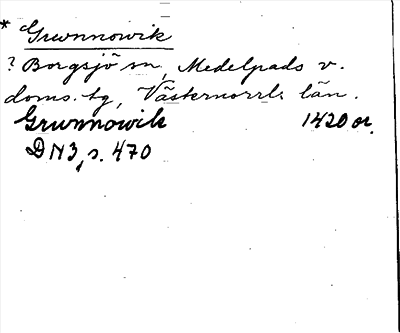 * Grwnnowik
? Borgsjö sn, Medelpads v.
doms. tg, Västernorrl. län.
Grwnnowik 1420 or.
DN 3, s. 470